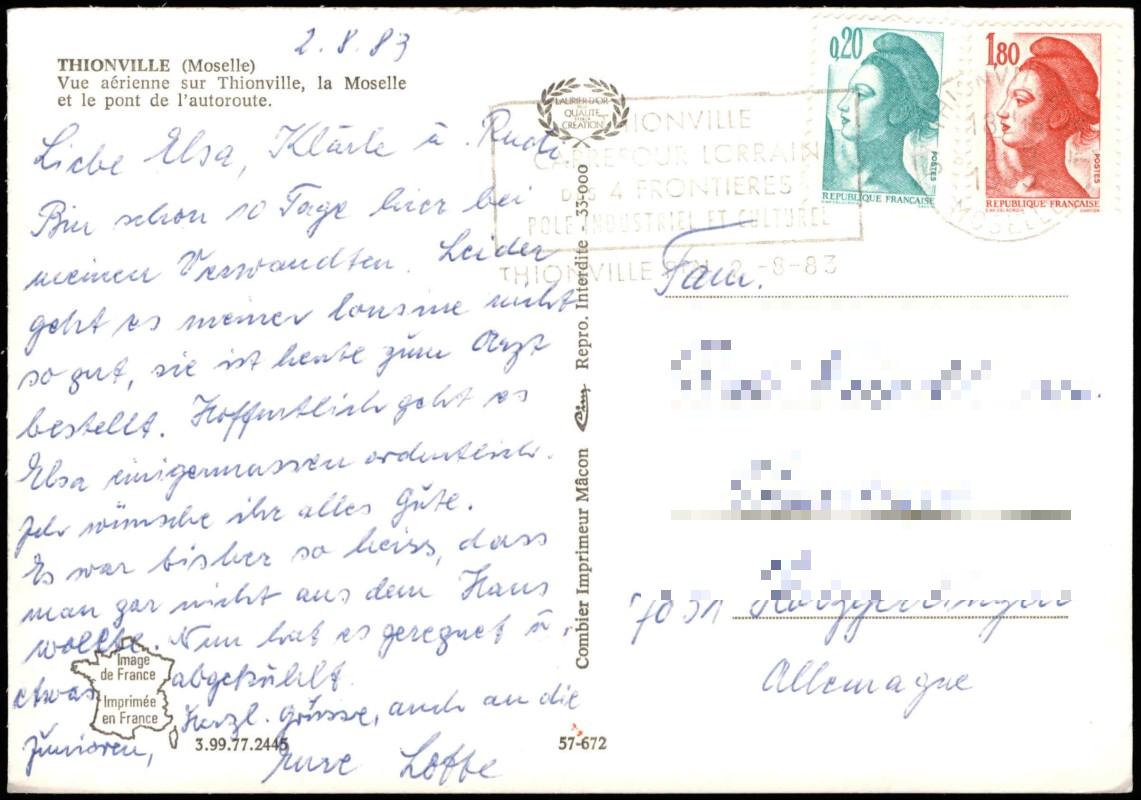 2.8.83
THIONVILLE (Moselle)
Vue aérienne sur Thionville, la Moselle
et le pont de l'autoroute.
Liebe Elsa, Klärle u. Rudi
Bin schon 10 Tage hier bei
meinen Verwandten. Leider
geht es meiner Cousine nicht
so gut, sie ist heute zum Arzt
bestellt. Hoffentlich geht es
Elsa einigermassen ordentlich.
Ich wünsche ihr alles Gute.
Es war bisher so heiss, dass
man gar nicht aus dem Haus
wollte. Nun hat es geregnet u.
etwas abgekühlt.
Herzl. Grüsse, auch an die
Junioren,
Eure Lotte
Image
de France
Imprimée
en France
3.99.77.2445
57-672
LAURIER D'OR
QUALITE
CREATION
Combier Imprimeur Mâcon Cim Repro. Interdite 33-000
THIONVILLE
CARREFOUR LORRAIN
DES 4 FRONTIERES
POLE INDUSTRIEL ET CULTUREL
THIONVILLE 2-8-83
0,20
POSTES
REPUBLIQUE FRANÇAISE
1,80
POSTES
REPUBLIQUE FRANÇAISE
MOSELLE
Fam.
7031
Allemagne